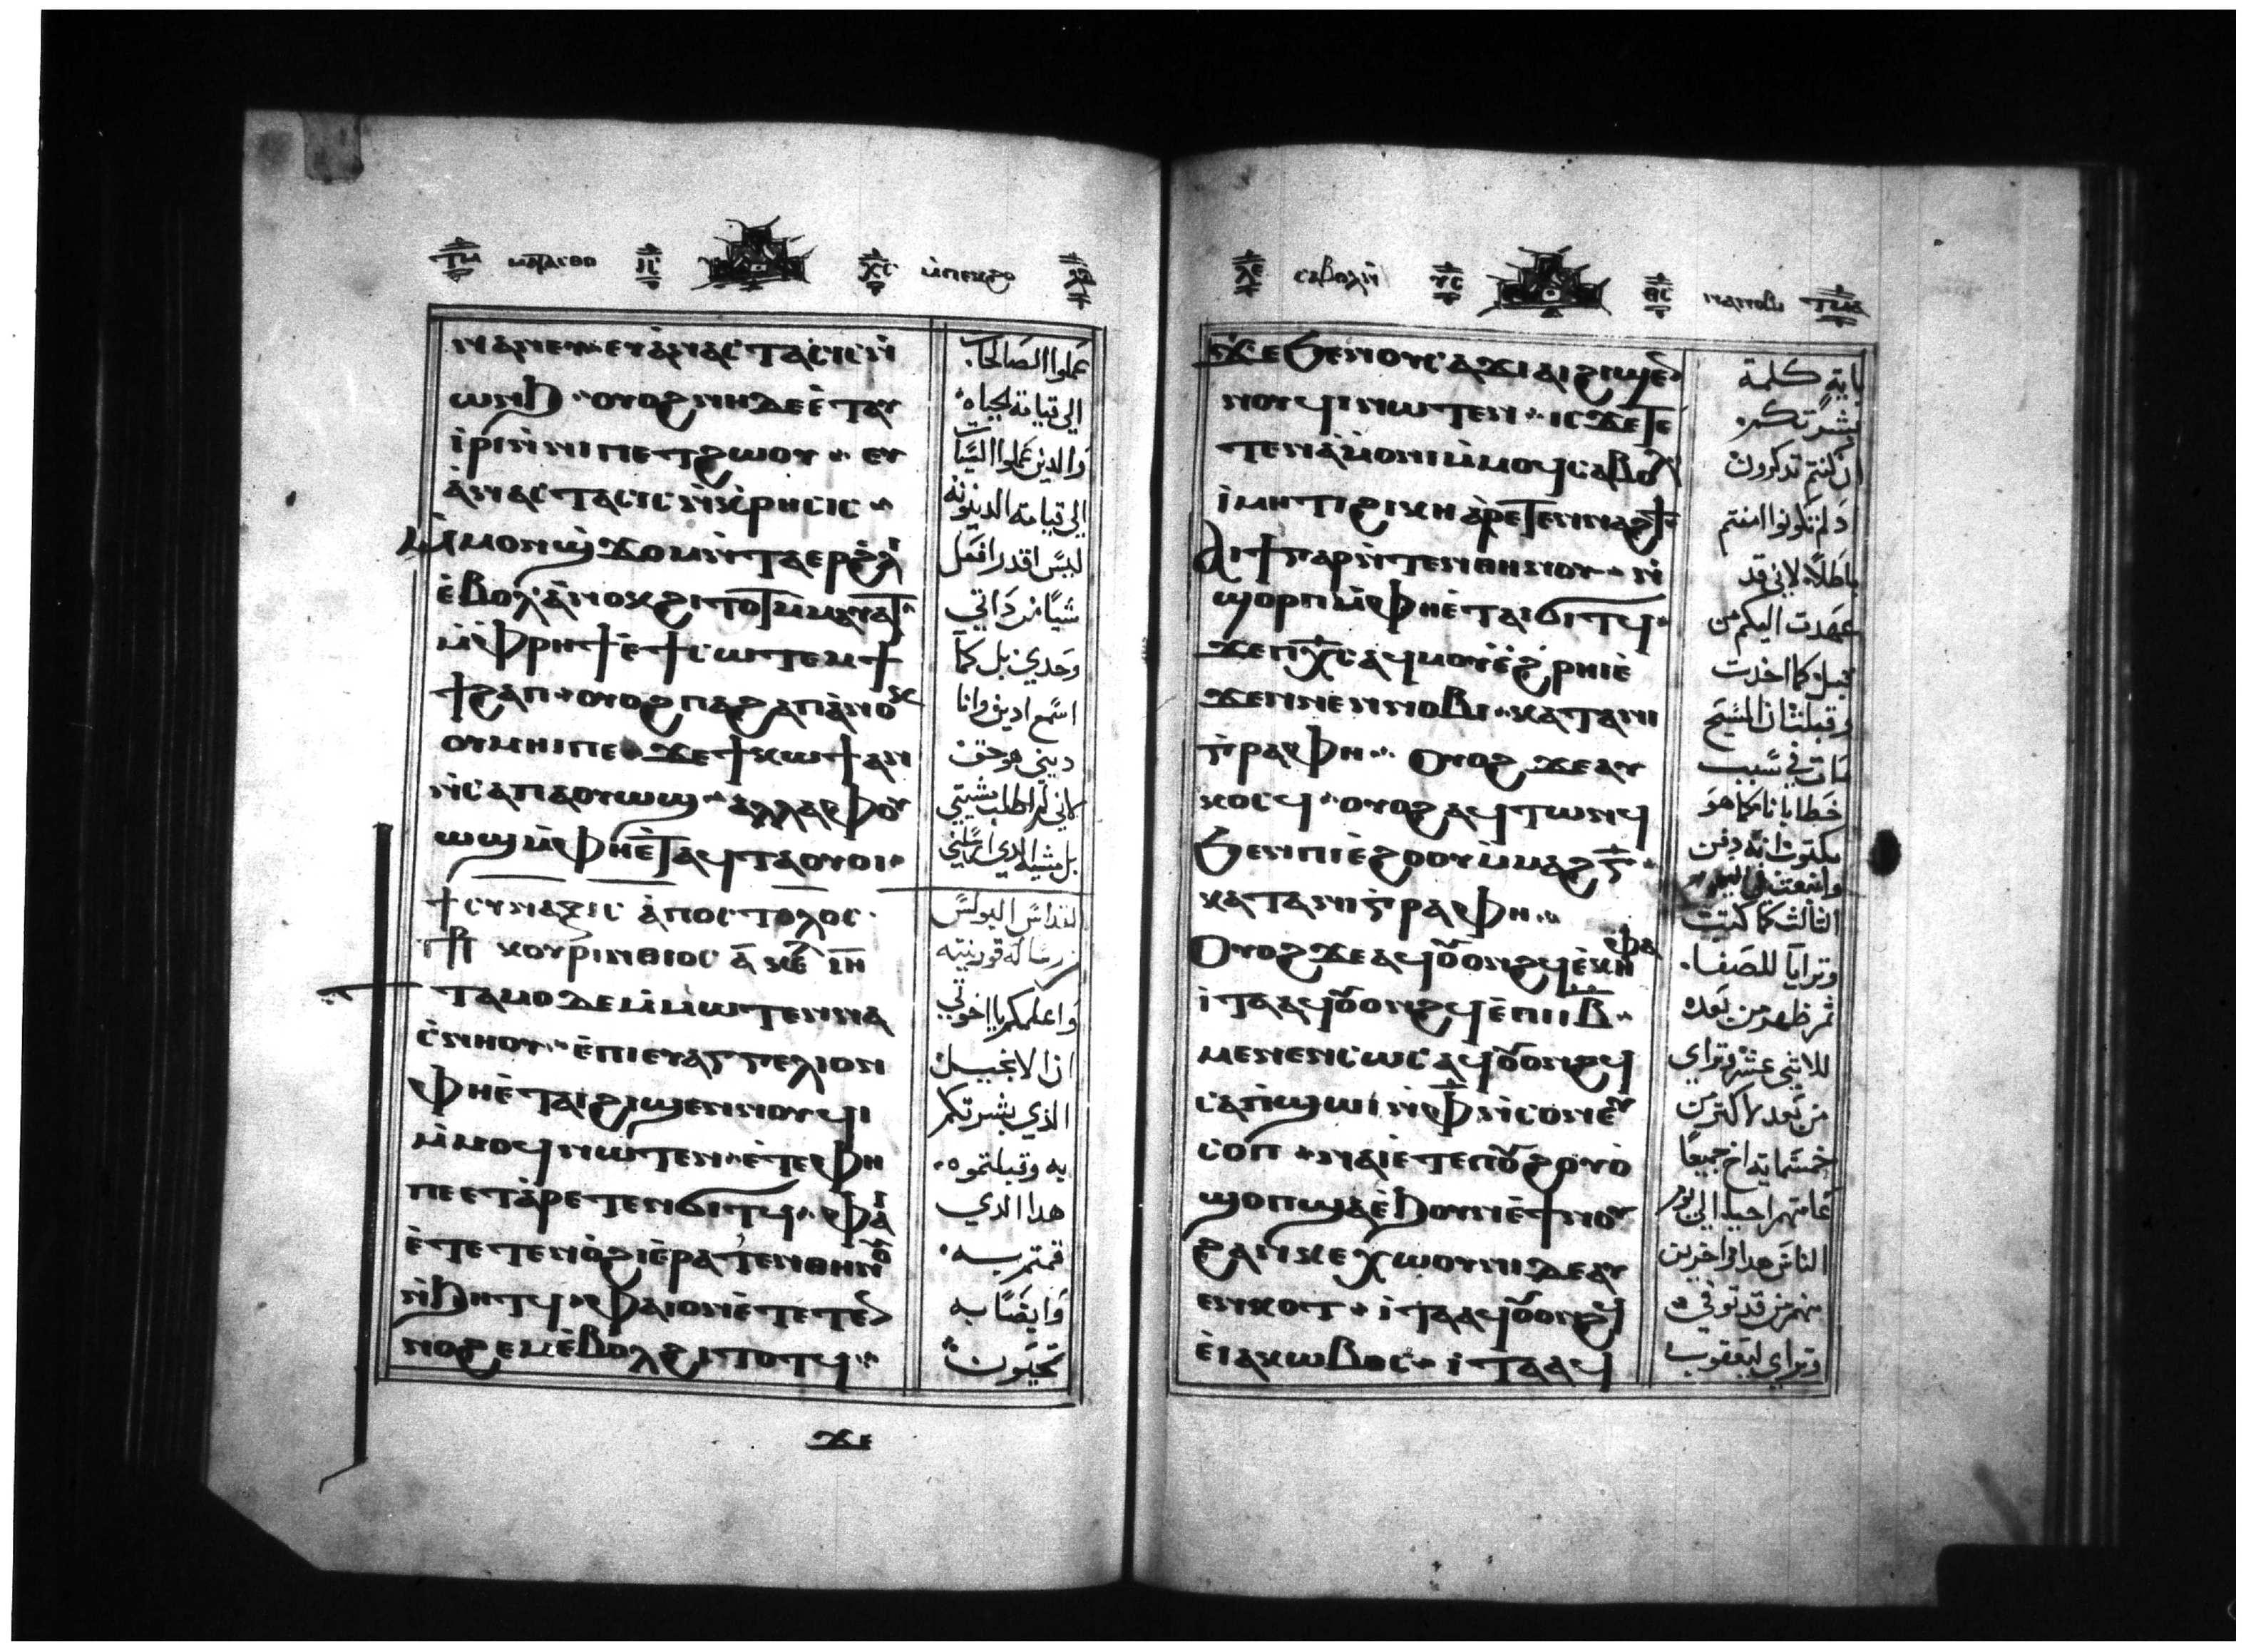 ⲛⲁⲛⲉⲩ ⲉⲩⲁⲛⲁⲥⲧⲁⲥⲓⲥ ⲛ̀
ⲱⲛϧ ⲟⲩⲟϩ ⲛⲏ ⲇⲉ ⲉ̀ⲧⲁⲩ
ⲓ̀ⲣⲓ ⲛ̀ⲛⲓⲡⲉⲧϩⲱⲟⲩ ⲉⲩ
ⲁ̀ⲛⲁⲥⲧⲁⲥⲓⲥ ⲛ̀ⲕ̀ⲣⲏⲥⲓⲥ
ⲙ̀ⲙⲟⲛ ϣϫⲟⲙ ⲛ̀ⲧⲁⲉⲣϩⲗⲓ
ⲉ̀ⲃⲟⲗ ⲁ̀ⲛⲟⲕ ϩⲓⲧⲟⲧ ⲙⲙⲁⲩⲁⲧ
ⲙ̀ⲫⲣⲏϯ ⲉ̀ϯⲥⲱⲧⲉⲙ ϯ
ϯϩⲁⲡ ⲟⲩⲟϩ ⲡⲁϩⲁⲡ ⲁ̀ⲛⲟⲕ
ⲟⲩⲙⲏⲓ ⲡⲉ ϫⲉ ϯⲕⲱϯ ⲁⲛ
ⲛ̀ⲥⲁ ⲡⲁⲟⲩⲱϣ ⲁⲗⲗⲁ ⲫⲟⲩ
ⲱϣ ⲙ̀ⲫⲏ ⲉ̀ⲧⲁϥⲧⲁⲟⲩⲟⲓ
ϯⲥⲩⲛⲁⲝⲓⲥ ⲁ̀ⲡⲟⲥⲧⲟⲗⲟⲥ
ⲕⲟⲩⲣⲓⲛⲑⲓⲟⲥ ⲁ̅ ⲕⲉ ⲓⲏ
ⲧⲁⲙⲟ ⲇⲉ ⲙ̀ⲙⲱⲧⲉⲛ ⲛⲁ
ⲥ̀ⲛⲏⲟⲩ ⲉ̀ⲡⲓⲉⲩⲁⲅⲅⲉⲗⲓⲟⲛ
ⲫⲏ ⲉ̀ⲧⲁⲓϩⲓϣⲉⲛⲛⲟⲩϥⲓ
ⲙ̀ⲙⲟϥ ⲛⲱⲧⲉⲛ ⲉ̀ⲧⲉ ⲫⲏ
ⲡⲉ ⲉⲧⲁ̀ⲣⲉⲧⲉⲛϭⲓⲧϥ ⲫⲁⲓ
ⲉ̀ⲧⲉⲧⲉⲛⲟ̀ϩⲓ ⲉ̀ⲣⲁⲧⲉⲛⲑⲏⲛⲟⲩ
ⲛ̀ϧⲏⲧϥ ⲫⲁⲓ ⲟⲛ ⲉ̀ⲧⲉⲧⲉ
ⲛⲟϩⲉⲙ ⲉ̀ⲃⲟⲗ ϩⲓⲧⲟⲧϥ
ϫⲉ
عملوا الصالحات
الي قيامة الحياه
والدين عملوا السيات
الي قيامة الدينونه
ليس اقدر افعل
شيا من داتي
وحدي بل كما
اسمع ادين وانا
ديني هو حق
لاني لم اطلب مشيتي
بل مشية الدي ارسلني
القداس البولس
رسالة قورنتيه
واعلمكم يا اخوتي
ان الانجيل
الذي بشرتكم
به وقبلتموه
هدا الدي
قمتم به
وايضا به
تحيون
ϫⲉ ϧⲉⲛ ⲟⲩⲥⲁϫⲓ ⲁⲓϩⲓϣⲉ
ⲛⲟⲩϥⲓ ⲛⲱⲧⲉⲛ ⲓⲥϫⲉ ⲧⲉ
ⲧⲉⲛⲁ̀ⲙⲟⲛⲓ ⲙ̀ⲙⲟϥ ⲥⲁⲃⲟⲗ
ⲓ̀ⲙⲏⲧⲓ ϩⲓⲕⲏ ⲁ̀ⲣⲉⲧⲉⲛⲛⲁϩϯ
ⲁⲓϯ ⲅⲁⲣ ⲛ̀ⲧⲉⲛⲑⲏⲛⲟⲩ ⲛ̀
ϣⲟⲣⲡ ⲙ̀ⲫⲏ ⲉ̀ⲧⲁⲓϭⲓⲧϥ
ϫⲉ ⲡⲭ̅ⲥ̅ ⲁϥⲙⲟⲩ ⲉ̀ϩ̀ⲣⲏⲓ ⲉ̀
ϫⲉⲛ ⲛⲉⲛⲛⲟⲃⲓ ⲕⲁⲧⲁ ⲛⲓ
ⲅ̀ⲣⲁⲫⲏ ⲟⲩⲟϩ ϫⲉ ⲁⲩ
ⲕⲟⲥϥ ⲟⲩⲟϩ ⲁϥⲧⲱⲛϥ
ϧⲉⲛ ⲡⲓⲉ̀ϩⲟⲟⲩ ⲙ̀ⲙⲁϩ ⲅ̅
ⲕⲁⲧⲁ ⲛⲓⲅ̀ⲣⲁⲫⲏ
ⲟⲩⲟϩ ϫⲉ ⲁϥⲟⲩⲟⲛϩϥ ⲉ̀ⲕⲏⲫⲁ
ⲓ̀ⲧⲁ ⲁϥⲟⲩⲟⲛϩϥ ⲉ̀ⲡⲓⲓ̅ⲃ̅
ⲙⲉⲛⲉⲛⲥⲱⲥ ⲁϥⲟⲩⲟⲛϩϥ
ⲥⲁⲡ̀ϣⲱⲓ ⲛ̀ⲫ̅ ⲛ̀ⲥⲟⲛ ⲉⲩ
ⲥⲟⲡ ⲛⲁⲓ ⲉ̀ⲧⲉ ⲡⲟⲩϩⲟⲩⲟ̀
ϣⲟⲡ ϣⲁ ⲉ̀ϧⲟⲩⲛ ⲉ̀ϯⲛⲟⲩ
ϩⲁⲛⲕⲉⲭⲱⲟⲩⲛⲓ ⲇⲉ ⲁⲩ
ⲉⲛⲕⲟⲧ ⲓ̀ⲧⲁ ⲁϥⲟⲩⲟⲛϩϥ
ⲉ̀ⲓⲁⲕⲱⲃⲟⲥ ⲓ̀ⲧⲁ ⲁϥ
باية كلمة
بشرتكم
ان كنتم تدكرون
باطلا لاني قد
عهدت اليكم من
قبل كما اخدت
وقبلت ان المسيح
مات في سبب
خطايانا كما هو
مكتوب انه دفن
الثالث كما كتبت
وترايا للصفا
ثم ظهر من بعده
للاثني عشر وتراي
من بعد لاكتر من
خمسماية اخ جميعا
الناس هدا واخرين
منهم من قد توفي
وتراي ليعقوب